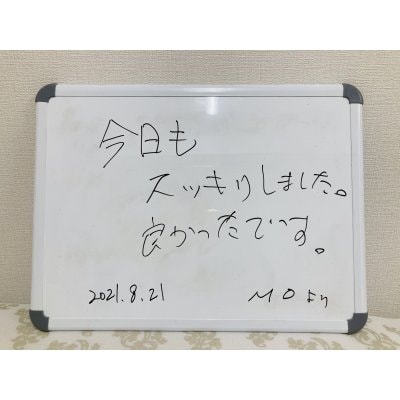 今日も
スッキリしました。
良かったです。
2021.8.21 M O より